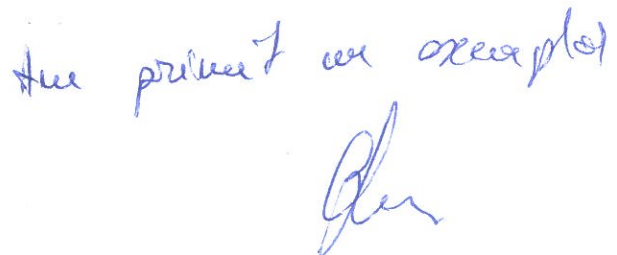 Am primit un exemplar